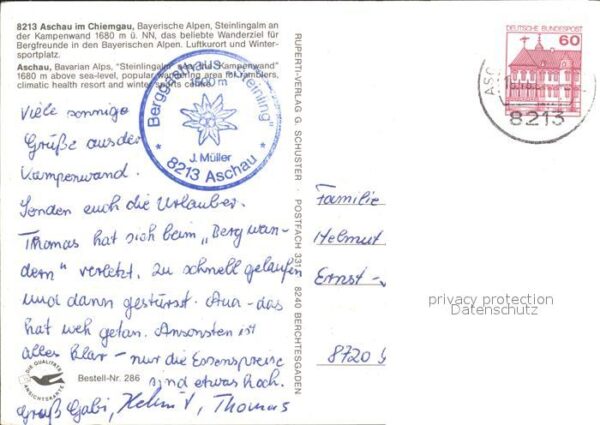 8213 Aschau im Chiemgau, Bayerische Alpen, Steinlingalm an
der Kampenwand 1680 m ü. NN, das beliebte Wanderziel für
Bergfreunde in den Bayerischen Alpen. Luftkurort und Winter-
sportplatz.
Aschau, Bavarian Alps, "Steinlingalm and
1680 m above sea-level, popular wandering area for ramblers,
climatic health resort and winter sports centre
Berggasthaus "Steinling"
1500 m
J. Müller
* 8213 Aschau *
Viele sonnige
Grüße aus der
Kampenwand.
Senden euch die Urlauber.
Thomas hat sich beim „Bergwan-
dern" verletzt. Zu schnell gelaufen
und dann gestürzt. Aua - das
hat weh getan. Ansonsten ist
alles klar - nur die Essenspreise
sind etwas hoch.
Gruß Gabi, Helmut, Thomas
DIE QUALITÄTS
ANSICHTSKARTE
Bestell-Nr. 286
RUPERTI-VERLAG G. SCHUSTER · POSTFACH 331 · 8240 BERCHTESGADEN
DEUTSCHE BUNDESPOST
60
ASC
8213
Familie
Helmut
Ernst-
8720
privacy protection
Datenschutz